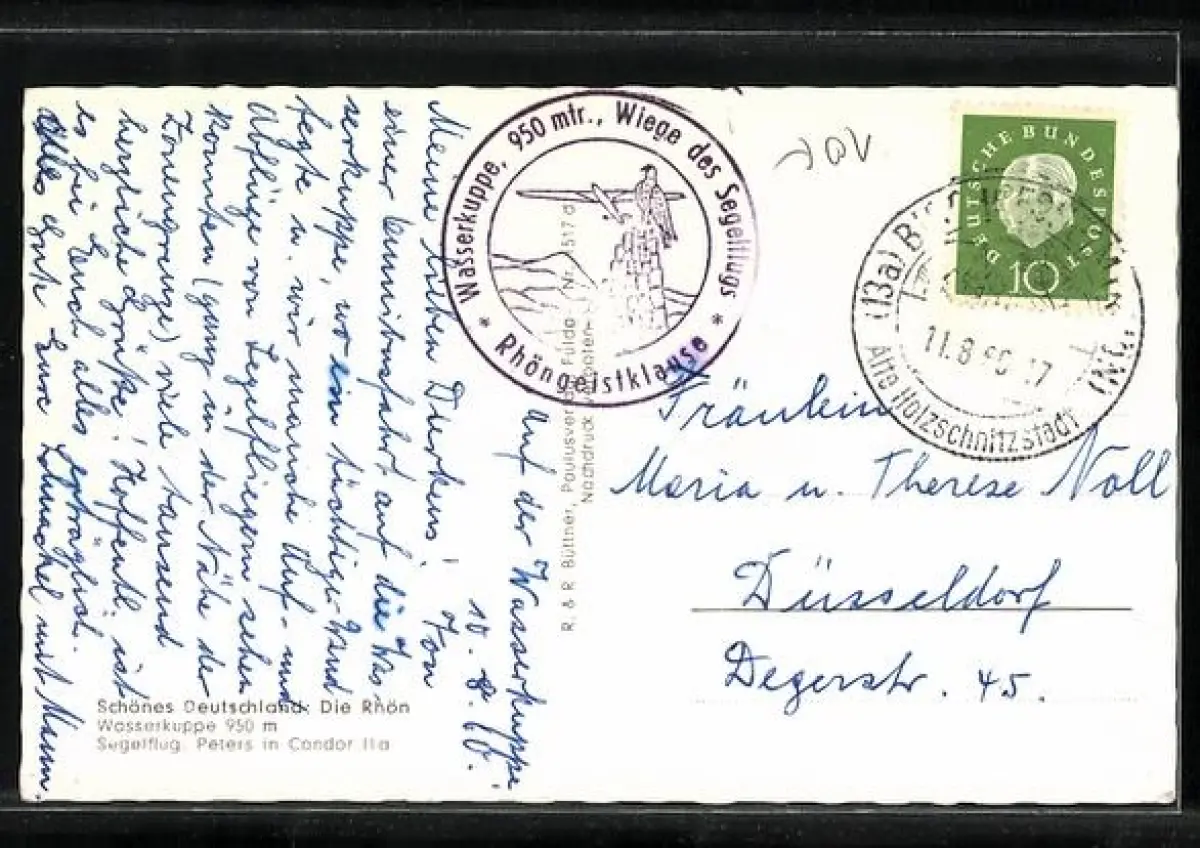 Auf der Wasserkuppe
10.8.60.
Meine lieben Durkens! Von
einer Omnibusfahrt auf die Was
serkuppe, wo ein tüchtiger Wind
fegte u. wir manche Auf- und
Abflüge von Segelfliegern sehen
konnten (ganz in der Nähe der
Zonengrenze) viele tausend
herzliche Grüße! Hoffentl. ist
es bei Euch alles
Alles Gute Eure mit Mann.
* Wasserkuppe, 950 mtr., Wiege des Segelflugs *
Rhöngeistklause
R. & R. Büttner, Paulusverlag Fulda Nr. 517 d
Nachdruck verboten
Schönes Deutschland: Die Rhön
Wasserkuppe 950 m
Segelflug. Peters in Condor IIa
DEUTSCHE BUNDESPOST
10
(13a)
11.8.60
Alte Holzschnitzstadt
Fräulein
Maria u. Therese Noll
Düsseldorf
Degerstr. 45.